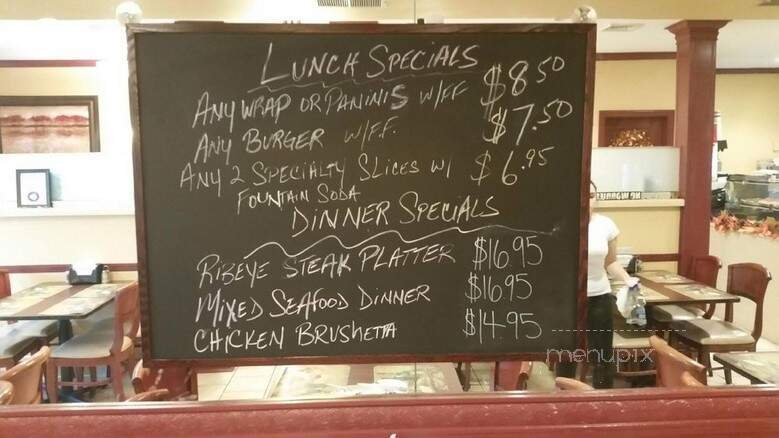 LUNCH SPECIALS
ANY WRAP OR PANINIS W/FF $8.50
ANY BURGER W/F.F. $7.50
ANY 2 SPECIALTY SLICES W/ $6.95
FOUNTAIN SODA
DINNER SPECIALS
RIBEYE STEAK PLATTER $16.95
MIXED SEAFOOD DINNER $16.95
CHICKEN BRUSHETTA $14.95
menupix